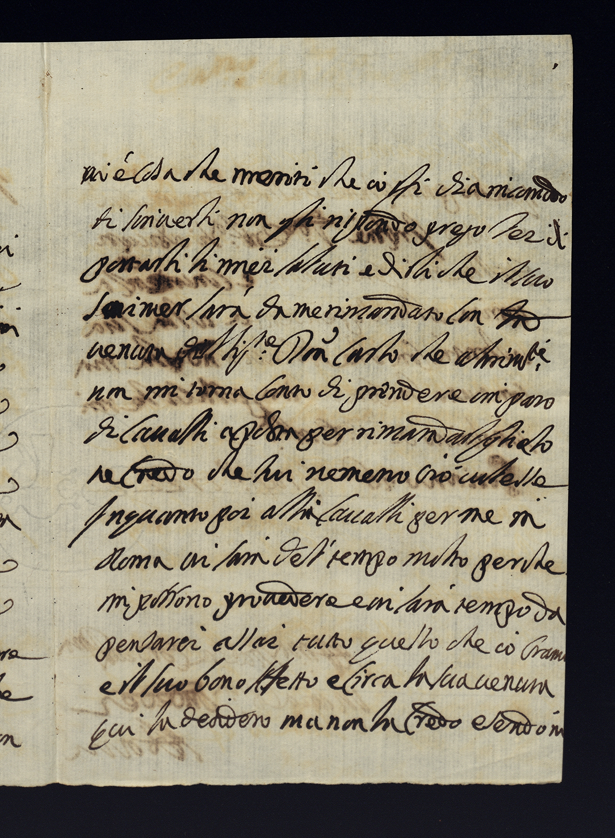 vi é Cosa che meriti che io sti di a ricomodo
ti scriverli non gli rispondo prego lei di
portarli li miei saluti e dirli che il suo
Seimer sarà da me rimandato con la
venuta dell' Ill.re Don Carlo che altrim.ti
non mi torna Conto di prendere un paro
di Cavalli a posta per rimandarglielo
ne Credo che lui nemeno Ciò volesse
Inquanto poi alli Cavalli per me in
Roma vi sarà del tempo molto perche
mi possono provedere e vi sarà tempo da
pensarci assai tutto quello che io bramo
e il suo bono affetto e Circa la sua venuta
qui la desidero ma non la Credo esendo in